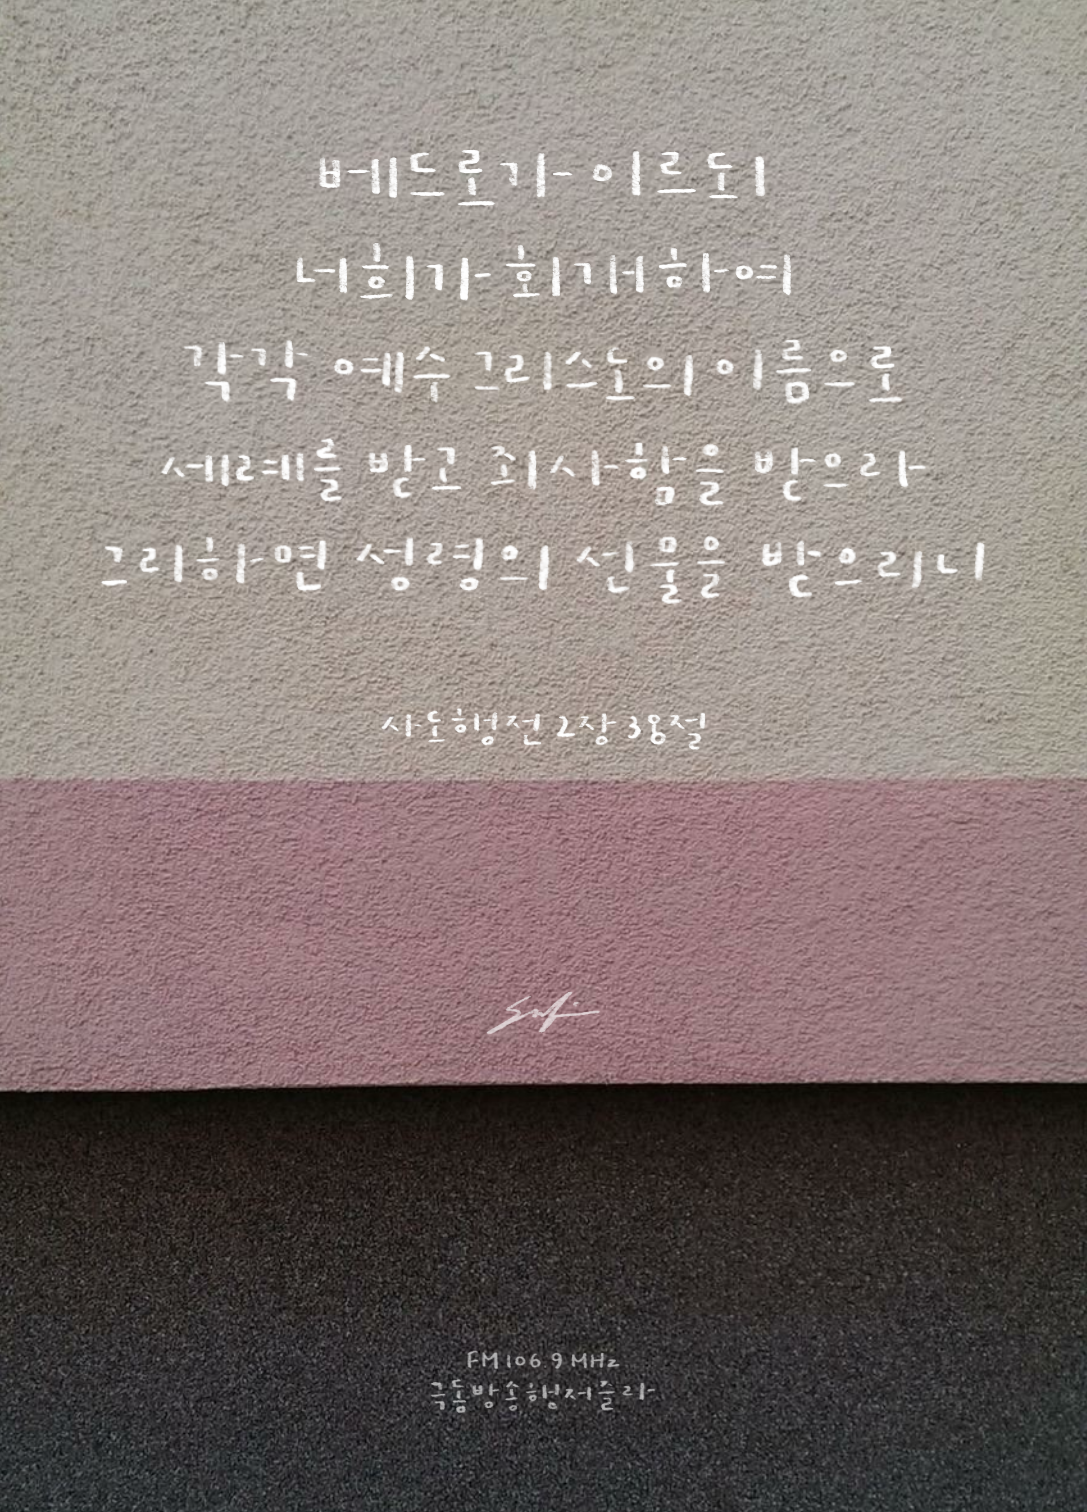 베드로가 이르되
너희가 회개하여
각각 예수 그리스도의 이름으로
세례를 받고 죄 사함을 받으라
그리하면 성령의 선물을 받으리니
사도행전 2장 38절
FM 106.9 MHz
극동방송행저을라